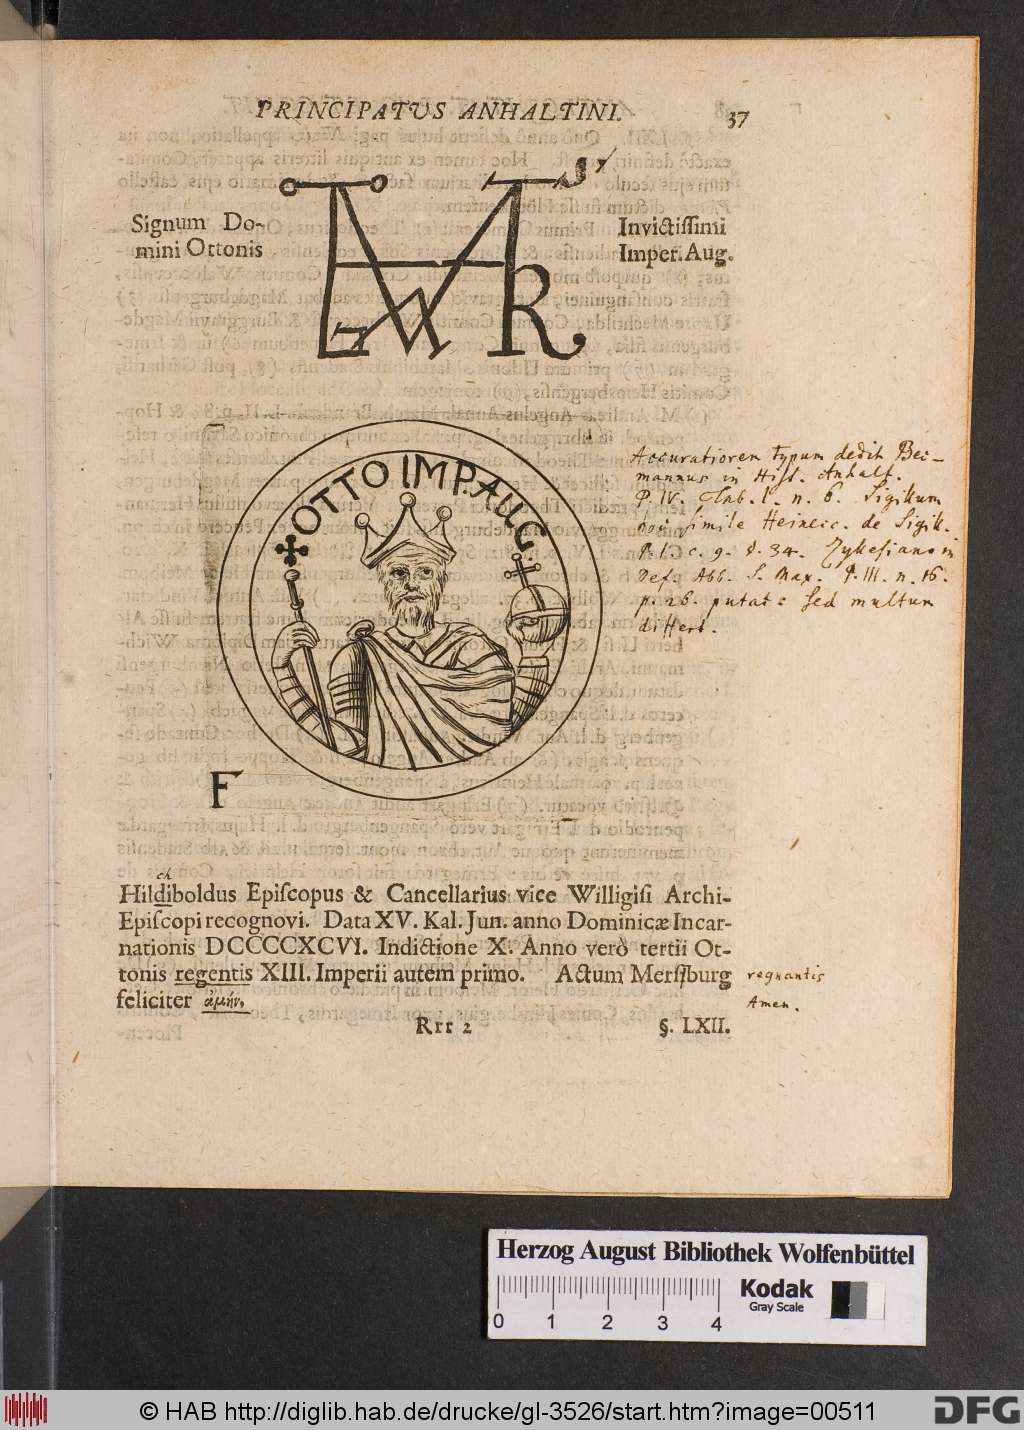 PRINCIPATVS ANHALTINI. 37
Signum Do-
mini Ottonis
Invictiſſimi
Imper. Aug.
OTTO IMP. AUG
Accuratiorem typum dedit Bec-
mannus in Hiſt. Anhalt.
P. IV. Tab. I. n. 6. Sigillum
ſimile Heinecc. de Sigill.
P. I. c. 9. 34.
Def. Abb. S. Max. P. III. n. 16.
p. 26. putat: ſed multum
differt.
F
ch
Hildiboldus Epiſcopus & Cancellarius vice Willigiſi Archi-
Epiſcopi recognovi. Data XV. Kal. Jun. anno Dominicæ Incar-
nationis DCCCCXCVI. Indictione X. Anno verò tertii Ot-
tonis regentis XIII. Imperii autem primo. Actum Merſſburg
regnantis
feliciter ἀμήν.
Amen.
Rrr 2 §. LXII.
Herzog August Bibliothek Wolfenbüttel
Kodak
Gray Scale
0 1 2 3 4
© HAB http://diglib.hab.de/drucke/gl-3526/start.htm?image=00511
DFG